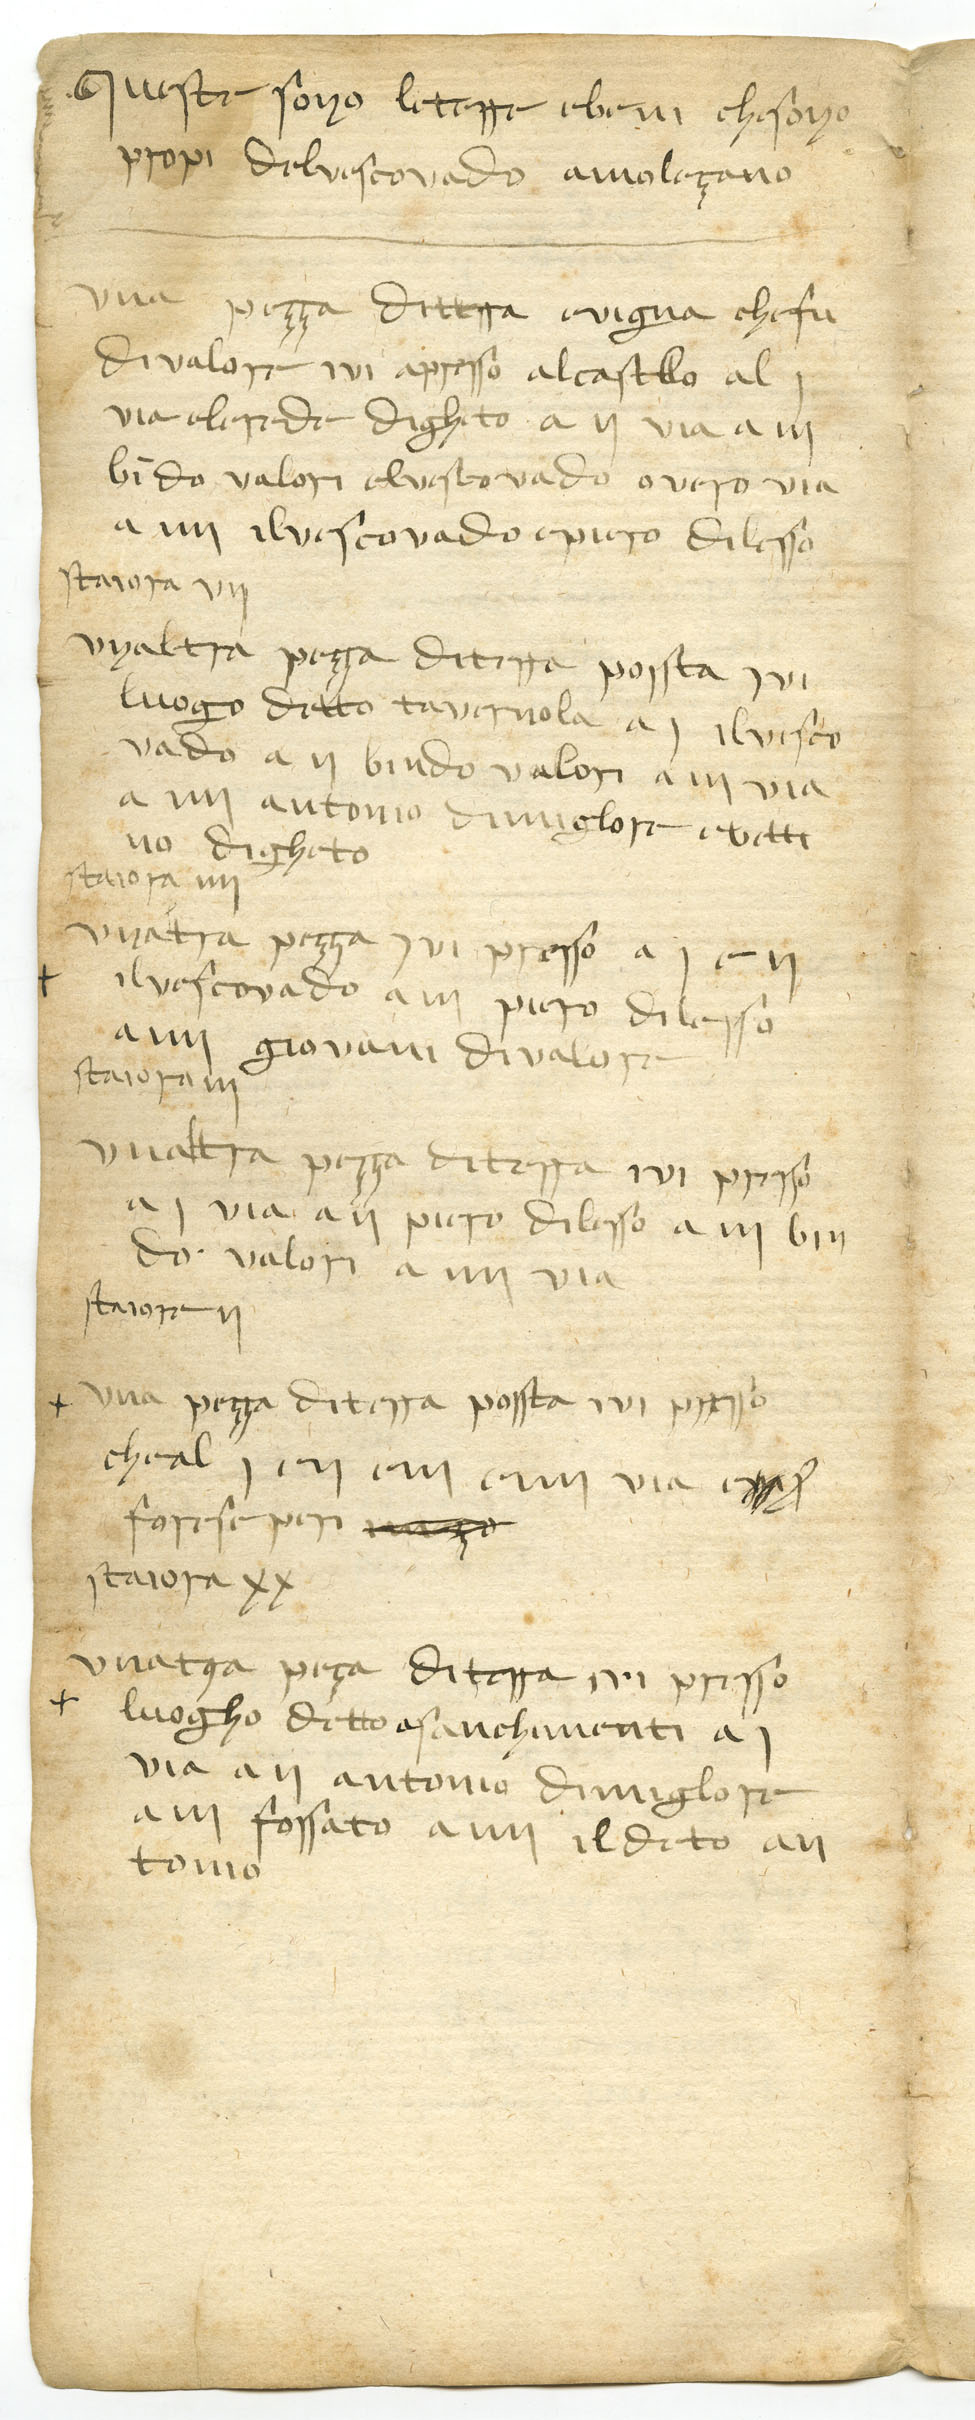 Queste sono leterre ebeni chesono
propi delvescovado amoleçano
una pezza diterra evigna chefu
divalore ivi apresso alcastello al j
via elerede digheto a ij via a iij
bīdo valori elvescovado overo via
a iiij ilvescovado epiero dilesso
staiora vij
unaltra pezza diterra possta ivi
luogo detto tavernola a j ilvesco
vado a ij bindo valori a iij via
a iiij antonio dimiglore ebetti
no digheto
staiora iiij
unatra pezza ivi presso a j e ij
+ ilvescovado a iij piero dilesso
a iiij giovani divalore
staiora iij
unaltra pezza diterra ivi presso
a j via a ij piero dilesso a iij bin
do valori a iiij via
staiore ij
+ una pezza diterra possta ivi presso
cheal j e ij e iij e iiij via
forese peri
staiora xx
unatra peça diterra ivi presso
+ luogho detto asanchimenti a j
via a ij antonio dimiglore
a iij fossato a iiij ildeto an
tonio